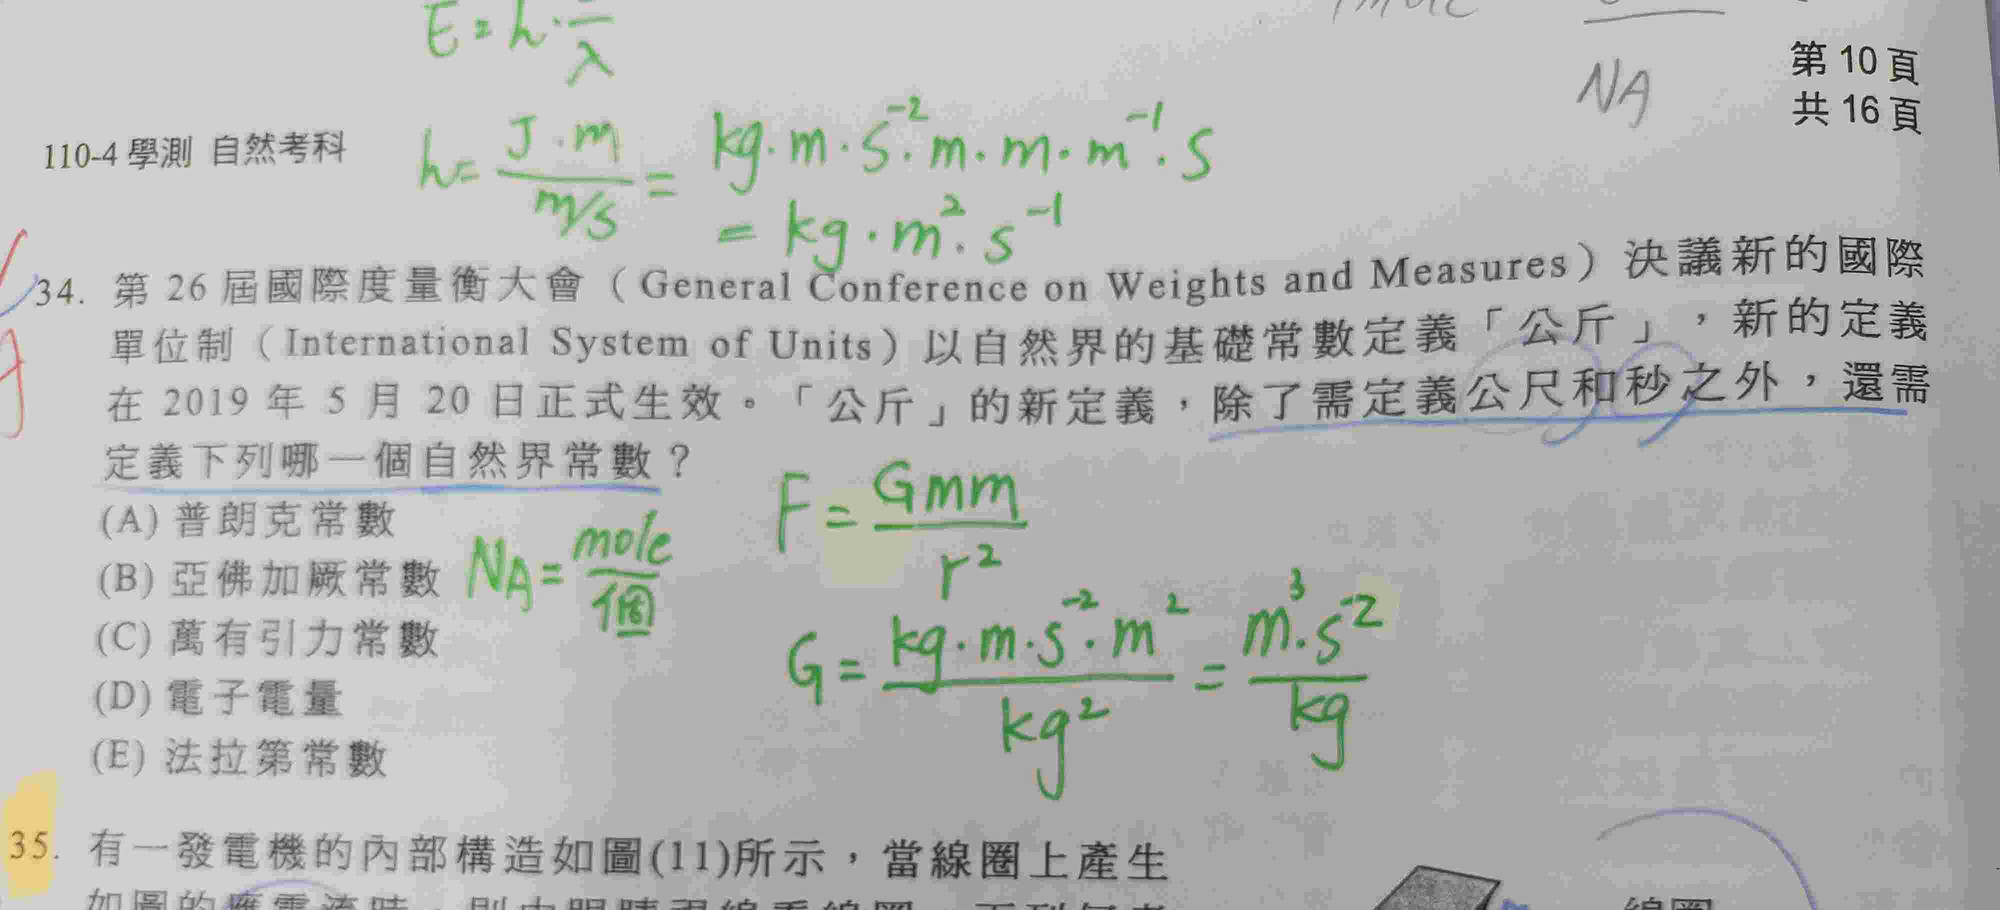 E = h · λ
NA
第 10 頁
共 16 頁
110-4 學測 自然考科
h = J · m / m/s = kg · m · s⁻² · m · m · m⁻¹ · s
= kg · m² · s⁻¹
34. 第 26 屆國際度量衡大會（General Conference on Weights and Measures）決議新的國際
單位制（International System of Units）以自然界的基礎常數定義「公斤」，新的定義
在 2019 年 5 月 20 日正式生效。「公斤」的新定義，除了需定義公尺和秒之外，還需
定義下列哪一個自然界常數？
(A) 普朗克常數
(B) 亞佛加厥常數
(C) 萬有引力常數
(D) 電子電量
(E) 法拉第常數
NA = mole / 個
F = Gmm / r²
G = kg · m · s⁻² · m² / kg² = m³ · s⁻² / kg
35. 有一發電機的內部構造如圖(11)所示，當線圈上產生
線圈